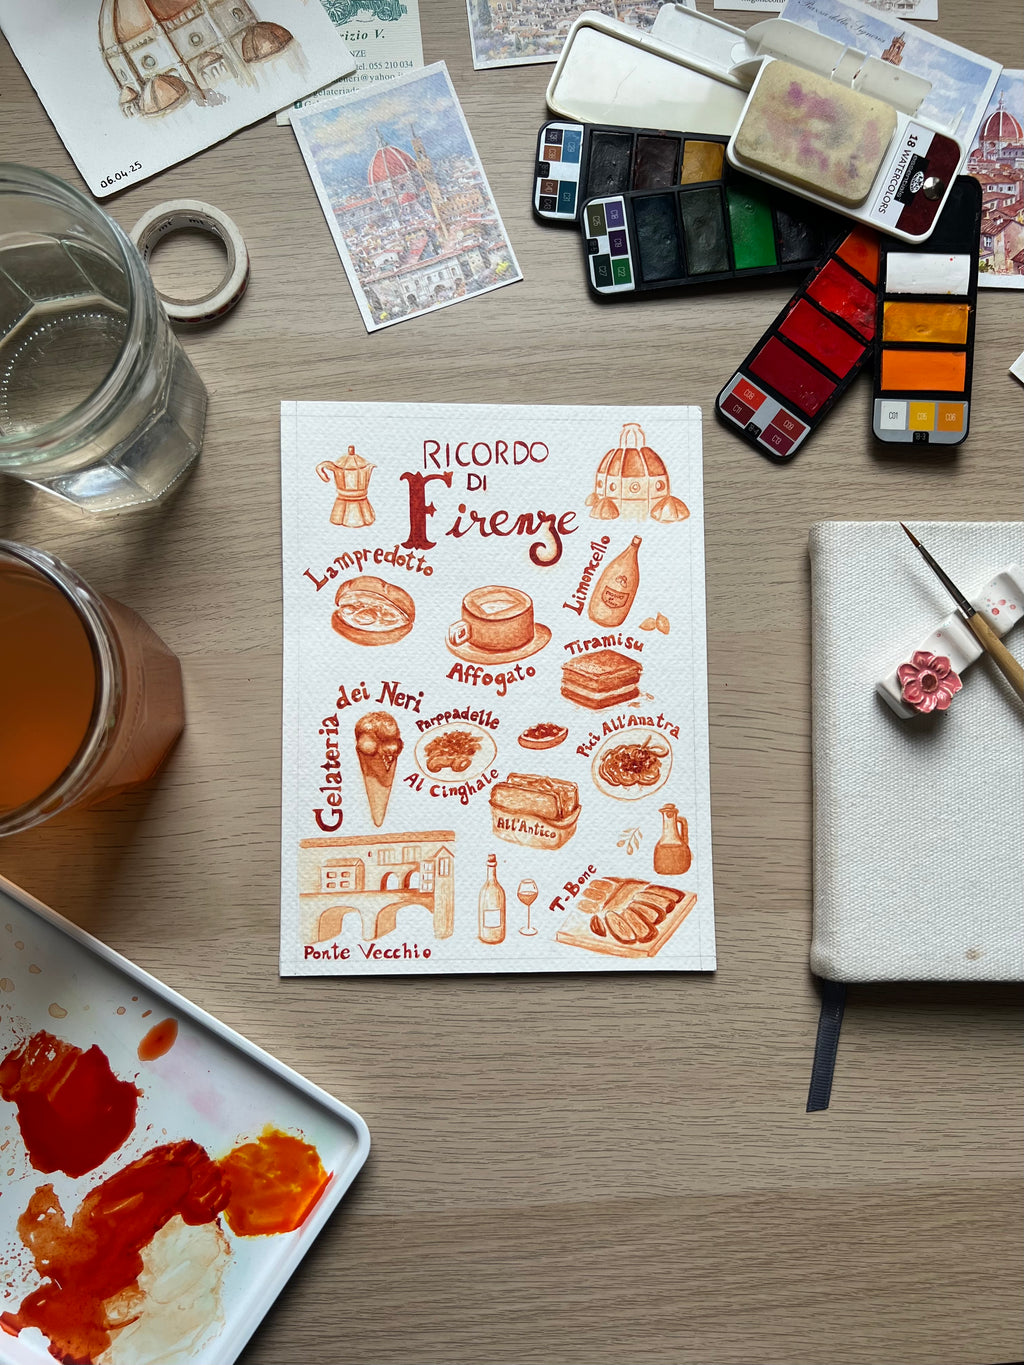 rizio V.
NZE
tel. 055 210 034
neri@yahoo.it
06.04.25
18 WATERCOLORS
C01
RICORDO
DI
Firenze
Lampredotto
Limoncello
Affogato
Tiramisu
Gelateria dei Neri
Parppadelle
Al Cinghale
Pici All'Anatra
All'Antico
T-Bone
Ponte Vecchio